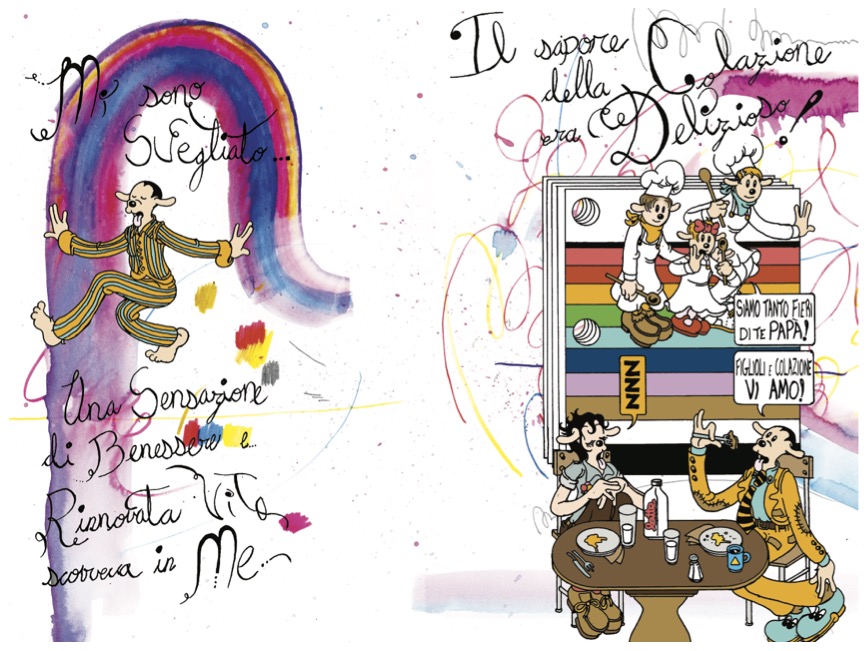 Mi sono
Svegliato...
Una Sensazione
di Benessere e...
Rinnovata Vita
scorreva in Me...
Il sapore
della Colazione
era Delizioso!
SIAMO TANTO FIERI
DI TE PAPÀ!
FIGLIOLI E COLAZIONE
VI AMO!
NNN